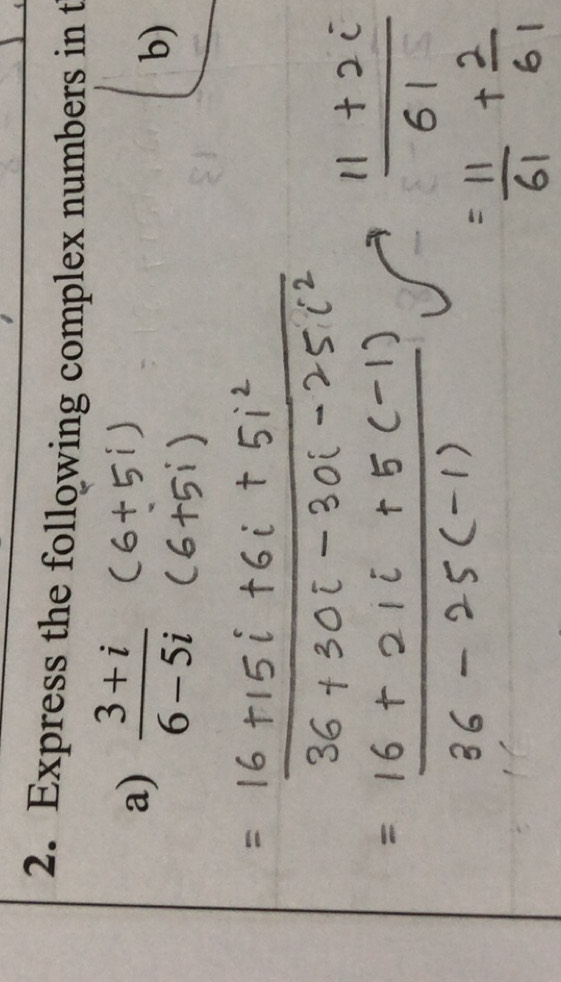 2. Express the following complex numbers in t
a) 3 + i (6 + 5i) b)
6 − 5i (6+5i)
= 16 +15i +6i + 5i²
36 + 30i − 30i − 25i²
= 16 + 21i + 5(−1)
36 − 25(−1)
11 + 2i
61
= 11 + 2
61 61